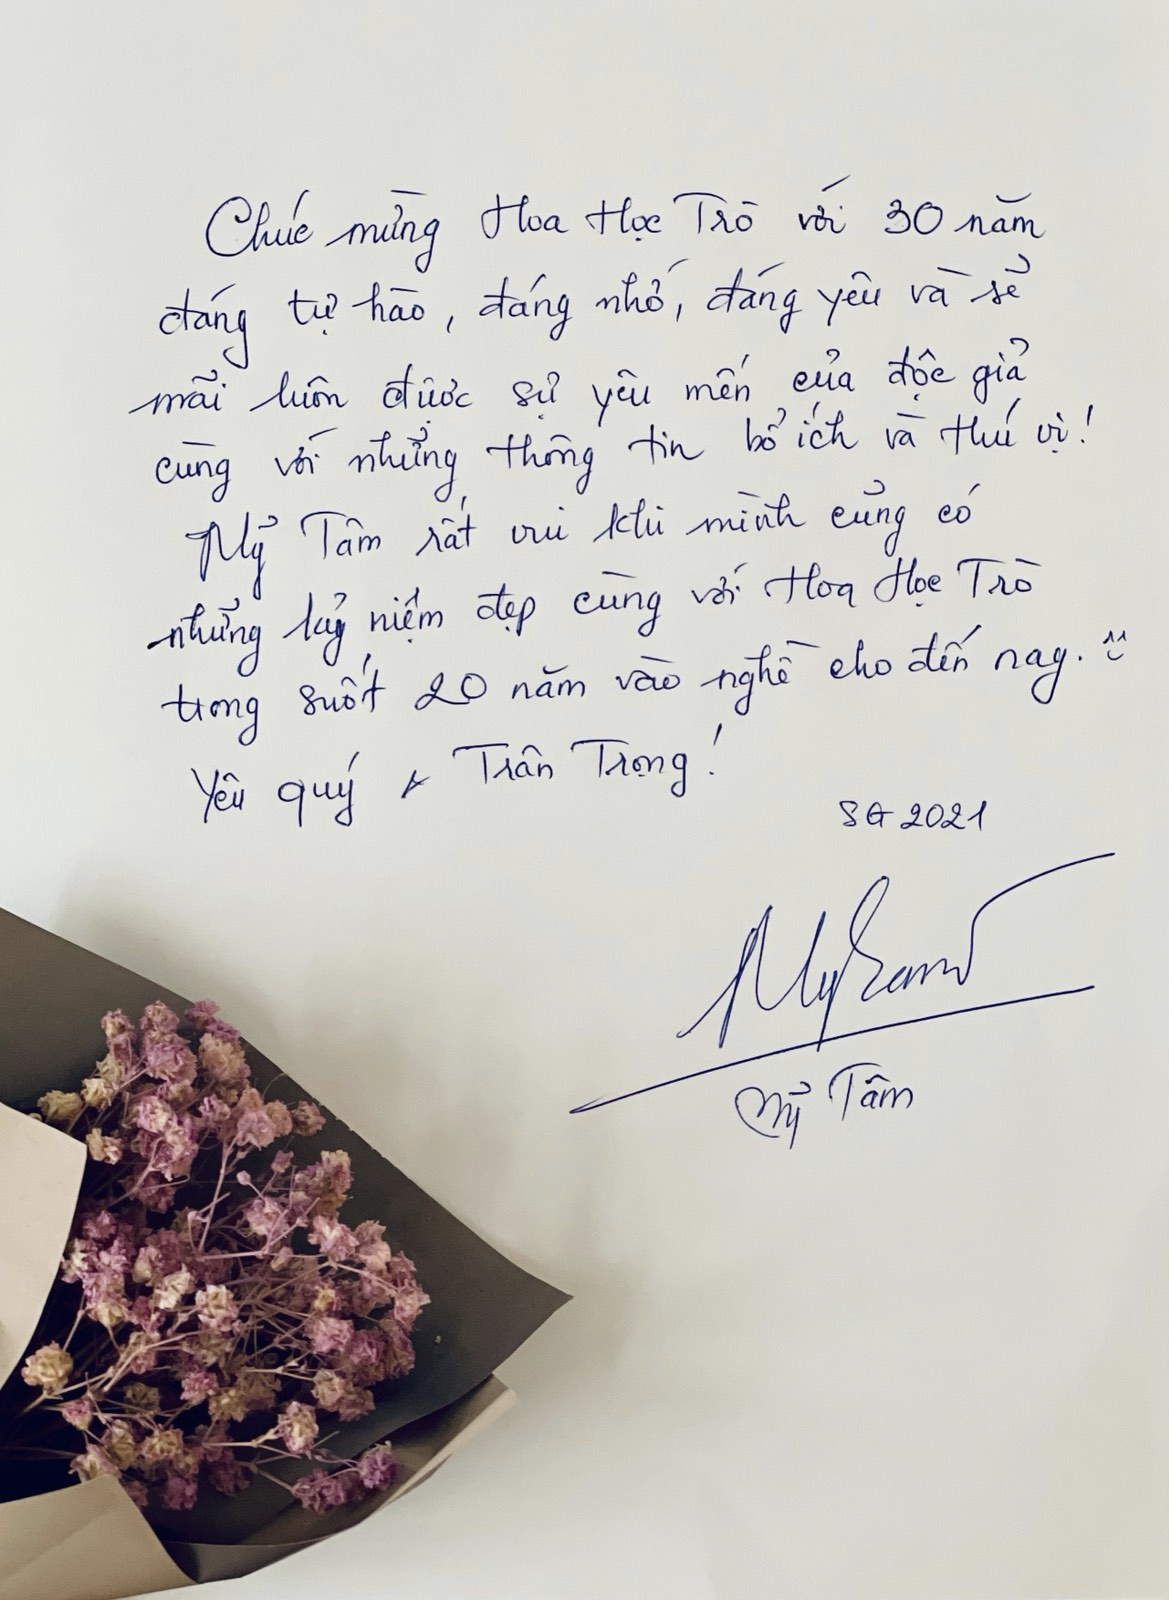 Chúc mừng Hoa Học Trò với 30 năm
đáng tự hào, đáng nhớ, đáng yêu và sẽ
mãi luôn được sự yêu mến của độc giả
cùng với những thông tin bổ ích và thú vị!
Mỹ Tâm rất vui khi mình cũng có
những kỷ niệm đẹp cùng với Hoa Học Trò
trong suốt 20 năm vào nghề cho đến nay. ^^
Yêu quý & Trân Trọng!
SG 2021
Mytam
Mỹ Tâm